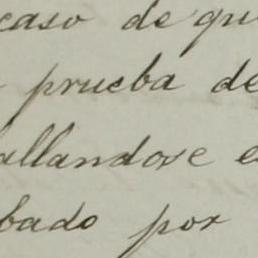 caso de qu
prueba de
allandose e
bado por